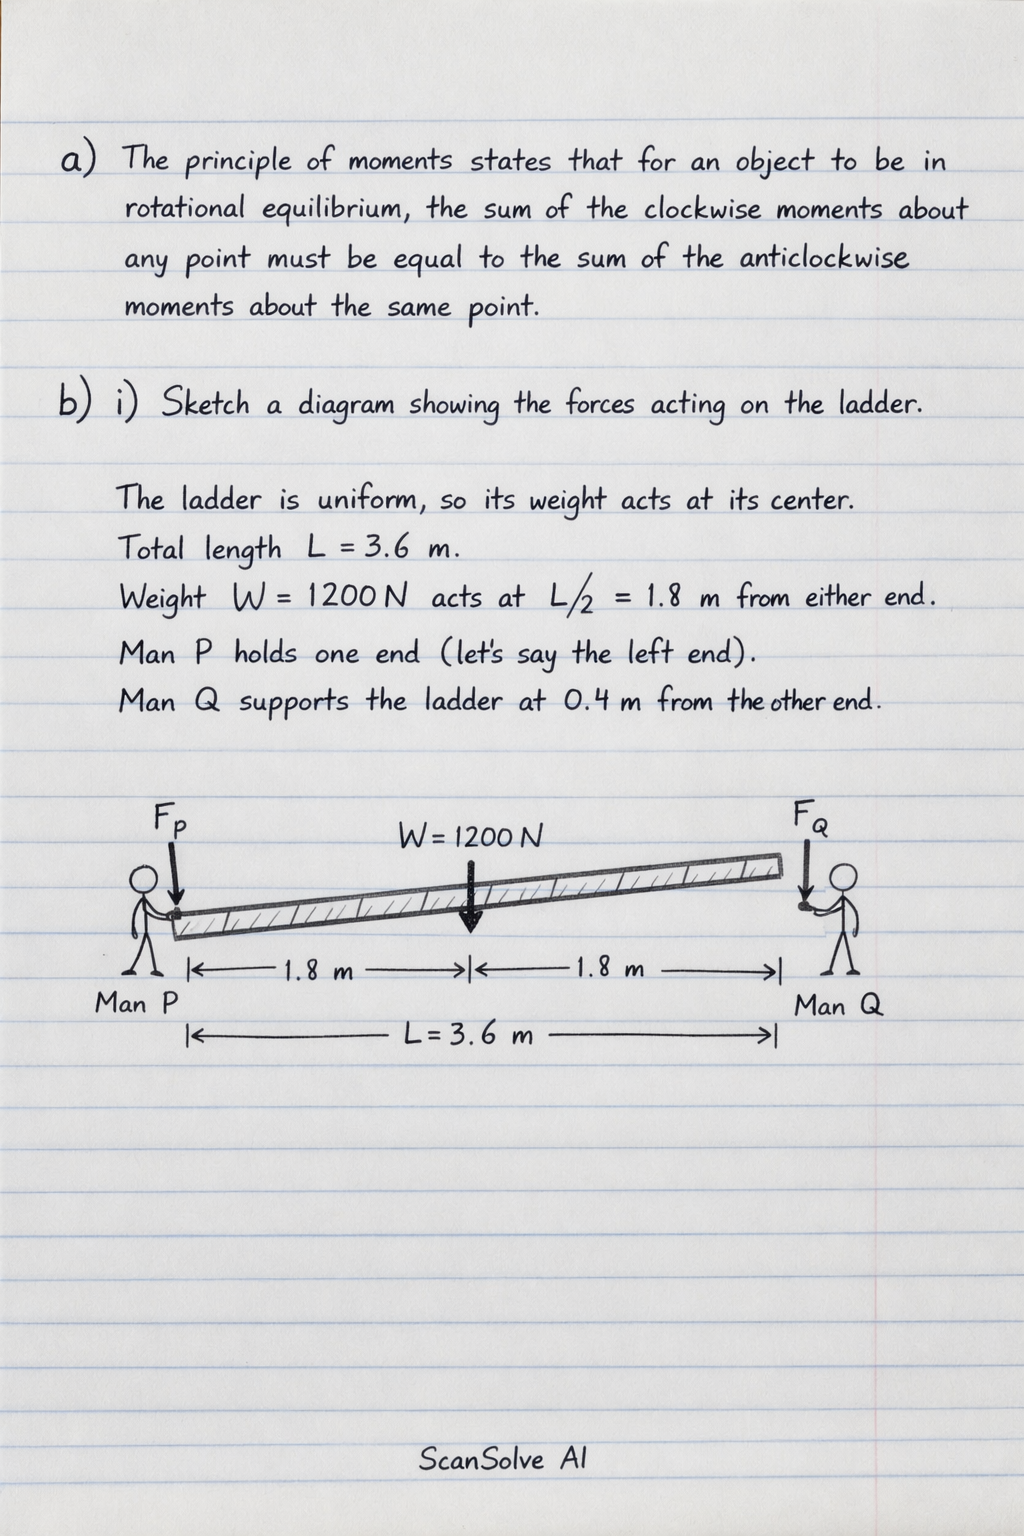 a) The principle of moments states that for an object to be in
rotational equilibrium, the sum of the clockwise moments about
any point must be equal to the sum of the anticlockwise
moments about the same point.
b) i) Sketch a diagram showing the forces acting on the ladder.
The ladder is uniform, so its weight acts at its center.
Total length L = 3.6 m.
Weight W = 1200 N acts at L/2 = 1.8 m from either end.
Man P holds one end (let's say the left end).
Man Q supports the ladder at 0.4 m from the other end.
F_P
W = 1200 N
F_Q
1.8 m
1.8 m
Man P
Man Q
L = 3.6 m
ScanSolve AI